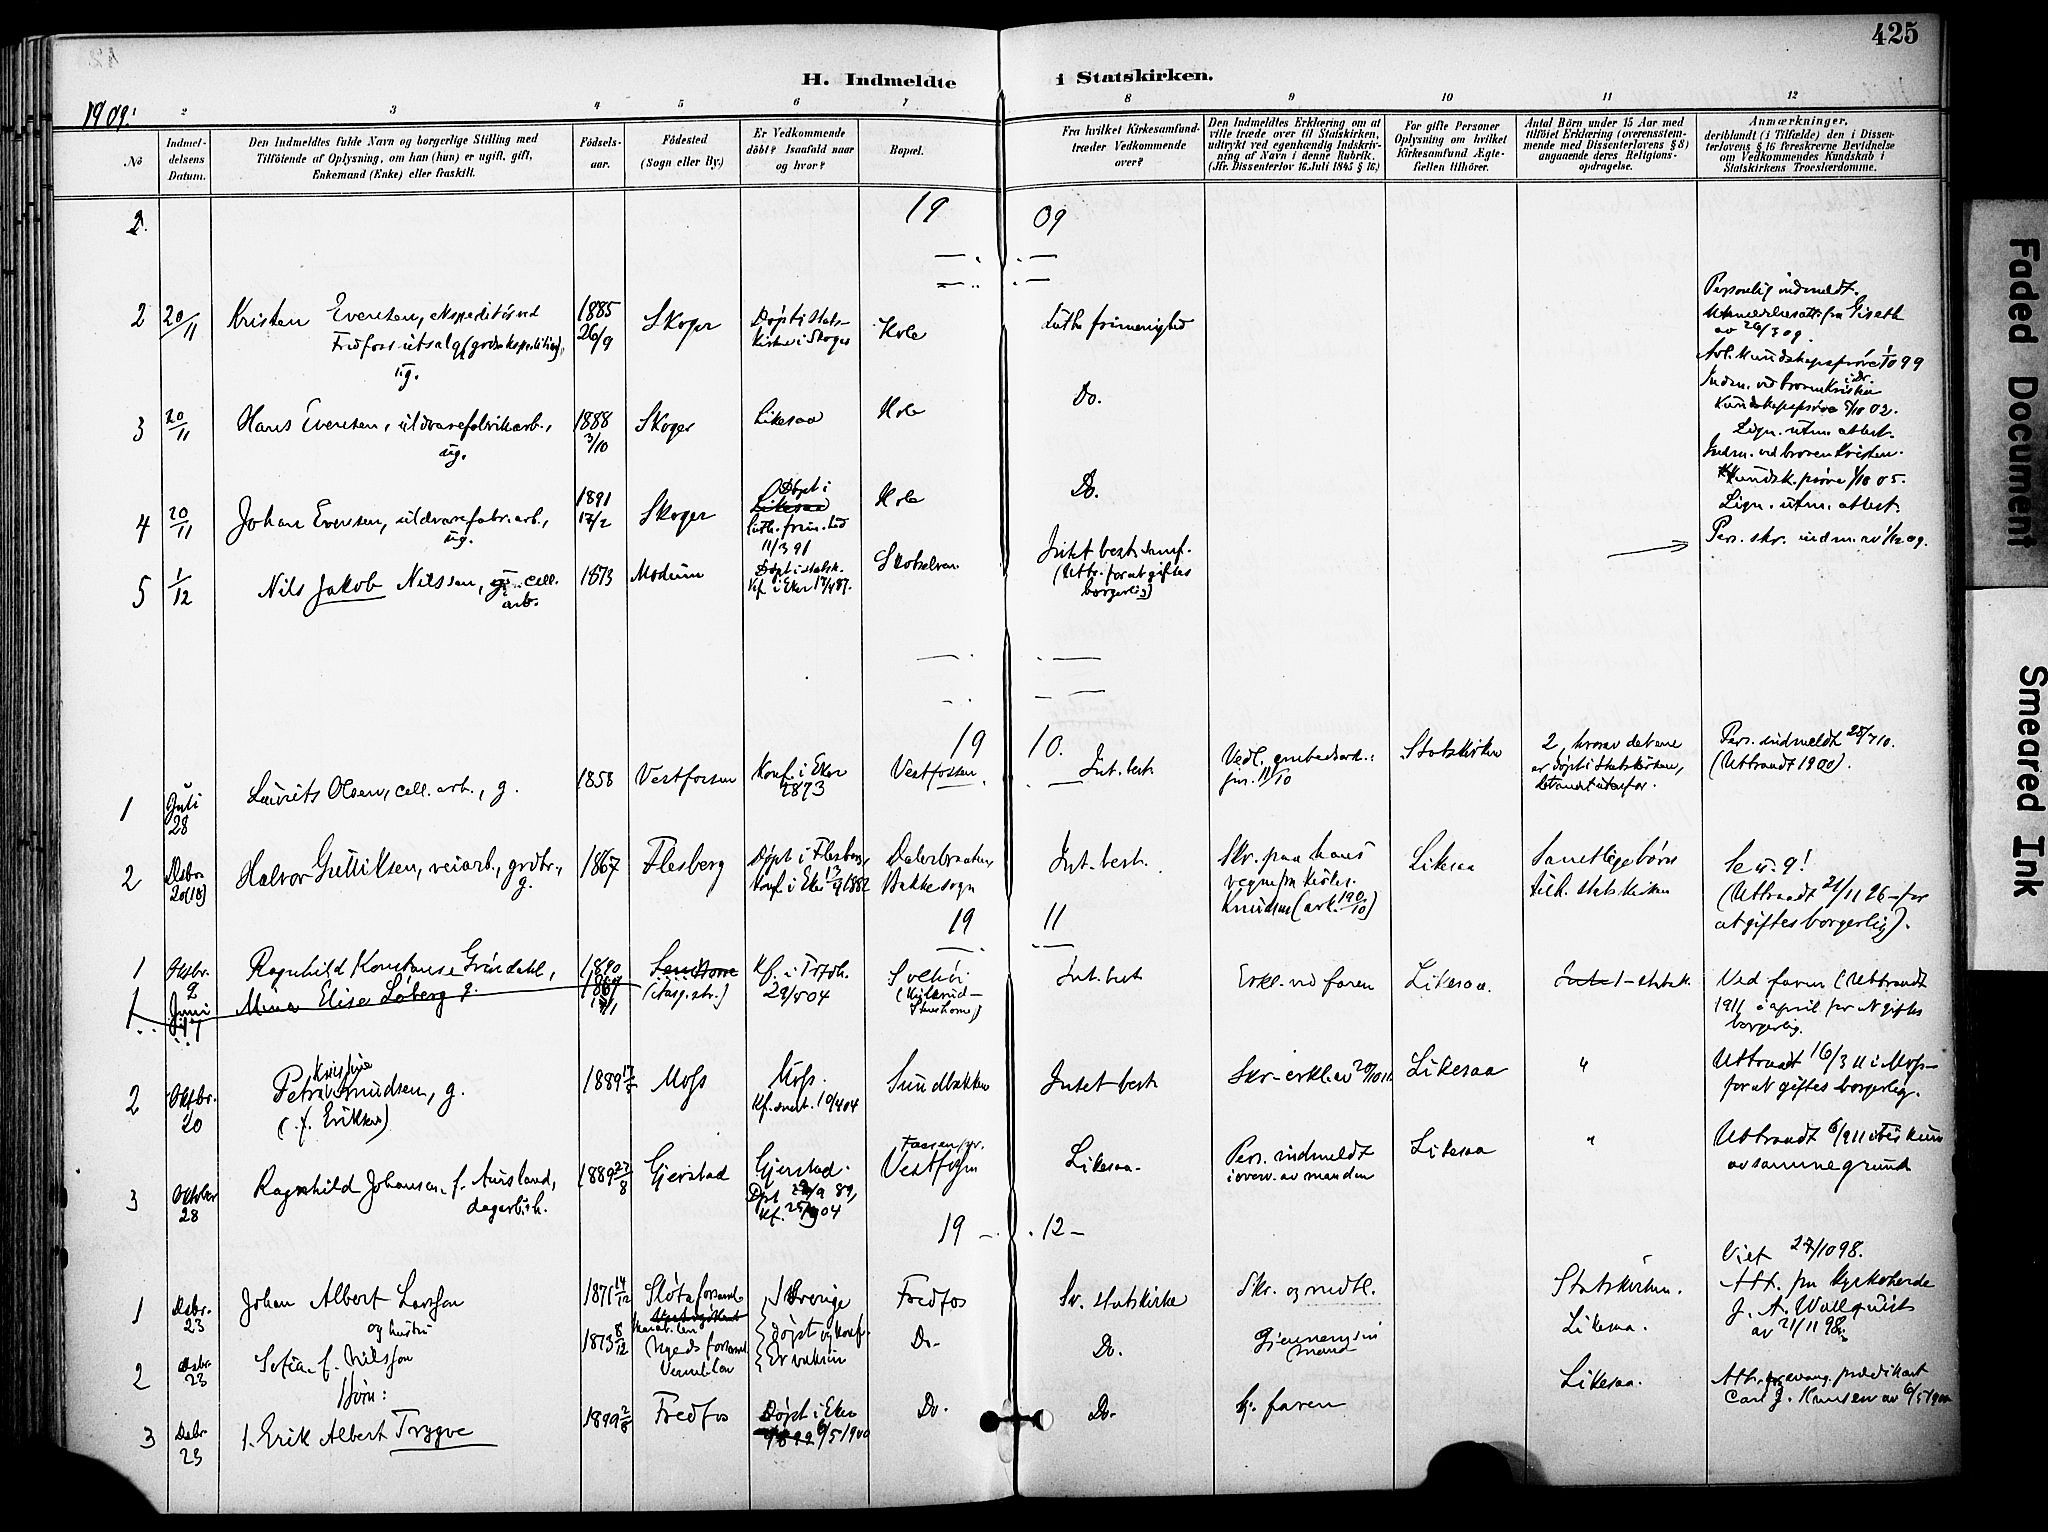 425
H. Indmeldte i Statskirken.
1909.
2 3 4 5 6 7 8 9 10 11 12
No
Indmel-
delsens
Datum.
Den Indmeldtes fulde Navn og borgerlige Stilling med
Tilføiende af Oplysning, om han (hun) er ugift, gift,
Enkemand (Enke) eller fraskilt.
Födsels-
aar.
Födested
(Sogn eller By.)
Er Vedkommende
döbt? Isaafald naar
og hvor?
Bopæl.
Fra hvilket Kirkesamfund
træder Vedkommende
over?
Den Indmeldtes Erklæring om at
ville træde over til Statskirken,
udtrykt ved egenhændig Indskriv-
ning af Navn i denne Rubrik.
(Jfr. Dissenterlov 16 Juli 1845 § 16)
For gifte Personer
Oplysning om hvilket
Kirkesamfund Ægte-
fællen tilhörer.
Antal Börn under 15 Aar med
tilföiet Erklæring (overensstem-
mende med Dissenterlovens § 8)
angaaende deres Religions-
opdragelse.
Anmærkninger,
deriblandt (i Tilfælde) den i Dissen-
terlovens § 16 foreskrevne Bevidnelse
om Vedkommendes Kundskab i
Statskirkens Troeslærdomme.
1909
2 20/11 Kristen Evensen, ekspeditør ved
Fredfoss utsalg (godsekspedition),
ug.
1885
26/9
Skoger
Døpt i Stats-
kirke i Skoger
Hole
Luth. frimenighed
Personlig indmeldt.
av 26/3 09.
Avl. Kundskapsprøve 1/10 99
3 20/11 Hans Evensen, uldvarefabrikarb.,
ug.
1888
3/10
Skoger
Likesaa
Hole
Do.
Indm. ved broren Kristen
Kundskapsprøve 5/10 02.
Lign. utm. attest.
4 20/11 Johan Evensen, uldvarefabr.arb.,
ug.
1891
17/2
Skoger
Døpt i
Likesaa
Luth. frim. hed
11/3 91
Hole
Do.
Indm. ved broren Kristen.
Kundsk. prøve 1/10 05.
Lign. utm. attest.
5 1/12 Nils Jakob Nilssen, cell.
arb.
1873
Modum
Døpt i statsk.
Kf. i Eker
Skotselven
Intet best. samf.
(Uttr. for at giftes
borgerlig)
Pers. skr. indm. av 1/12 09.
1910.
1 Juli
28
Laurits Olsen, cell. arb., g.
1858
Vestfossen
Konf. i Eker
1873
Vestfossen.
Int. best.
Vedl.
jnr. 11/10
Statskirken
2, hvorav det ene
er døpt i Statskirken,
det andet utenfor.
Pers. indmeldt 28/7 10.
(Uttraadt 1900).
2 Dsbr.
20(10)
Halvor Gulliksen, veiarb., grdbr.,
g.
1867
Flesberg
Døpt i Flesberg
Konf. i Eker 1882
Bakkesogn
Int. best.
Skr. paa hans
Knudsen (ark. 190/10)
Likesaa
Samtlige børn
tilh. statskirken
(Uttraadt for
at giftes borgerlig).
1911
1 Oktbr.
2
Ragnhild Konstanse Gröndahl,
1890
Kf. i Trjh.
29/5 04
Solhöi
Int. best
Erkl. ved faren
Likesaa.
1 - statsk.
Ved faren (Uttraadt
1911 i april for at giftes
borgerlig.
1 Juni Mina Elise Løberg g.
2 Oktbr.
20
Petra Kristine Knudsen, g.
(f. Eriksen)
1889
Moss
Moss.
Kf. smst. 10/4 04
Sundbakken
Intet best.
Skr. erkl. av 20/10 11.
Likesaa
"
Uttraadt 16/3 11 i Moss
for at giftes borgerlig.
3 Oktober
28
Ragnhild Johansen f. Aursland,
dagarb.h.
1889 27/8
Gjerstad
Gjerstad.
Døpt 89,
Kf. 04
Vestfossen
Likesaa.
Pers. indmeldt
i overv. av manden
Likesaa
"
Uttraadt 6/9 11
av samme grund
1912
1 Dsbr.
23
Johan Albert Larsson
og hustru
1871 14/12
Slöta forsaml.
I Sverige
døpt og konf.
Er vaksin
Fredfos
Sv. statskirke
Skr. og mdtl.
Statskirken.
Viet 27/10 98.
Att. fra Kyrkoherde
J. A. Wallquist
av 21/11 98.
2 Dsbr.
23
Sofia f. Nilsson
Børn:
1873 8/12
Do.
Do.
Gjennem sin
mand
Likesaa.
3 Dsbr.
23
1. Erik Albert Trygve
1899 2/8
Fredfos
Døpt i Eker
6/5 1900
Do.
Do.
faren
Likesaa.
Att. fra evang. predikant
Carl J. Knusen av 6/5 1900
Faded Document
Smeared Ink